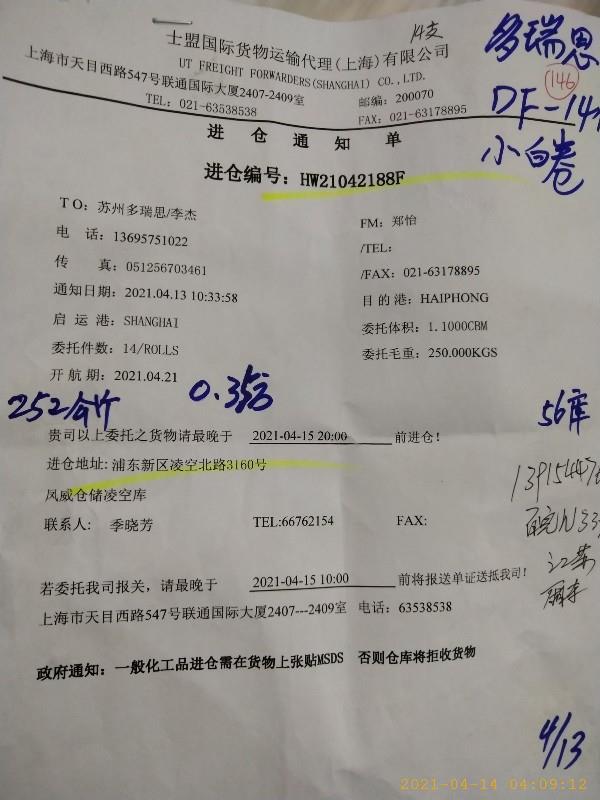 14支
士盟国际货物运输代理(上海)有限公司
UT FREIGHT FORWARDERS(SHANGHAI) CO.,LTD.
上海市天目西路547号联通国际大厦2407-2409室 邮编: 200070
TEL: 021-63538538 FAX: 021-63178895
多瑞思
146
DF-14
小白卷
进仓通知单
进仓编号: HW21042188F
TO: 苏州多瑞思/李杰 FM: 郑怡
电 话: 13695751022 /TEL:
传 真: 051256703461 /FAX: 021-63178895
通知日期: 2021.04.13 10:33:58 目的港: HAIPHONG
启运港: SHANGHAI 委托体积: 1.1000CBM
委托件数: 14/ROLLS 委托毛重: 250.000KGS
开航期: 2021.04.21
252公斤 0.3 56库
贵司以上委托之货物请最晚于 2021-04-15 20:00 前进仓!
进仓地址: 浦东新区凌空北路3160号
1391544
凤威仓储凌空库
联系人: 季晓芳 TEL:66762154 FAX:
若委托我司报关, 请最晚于 2021-04-15 10:00 前将报送单证送抵我司!
上海市天目西路547号联通国际大厦2407---2409室 电话: 63538538
政府通知: 一般化工品进仓需在货物上张贴MSDS 否则仓库将拒收货物
4/13
2021-04-14 04:09:12